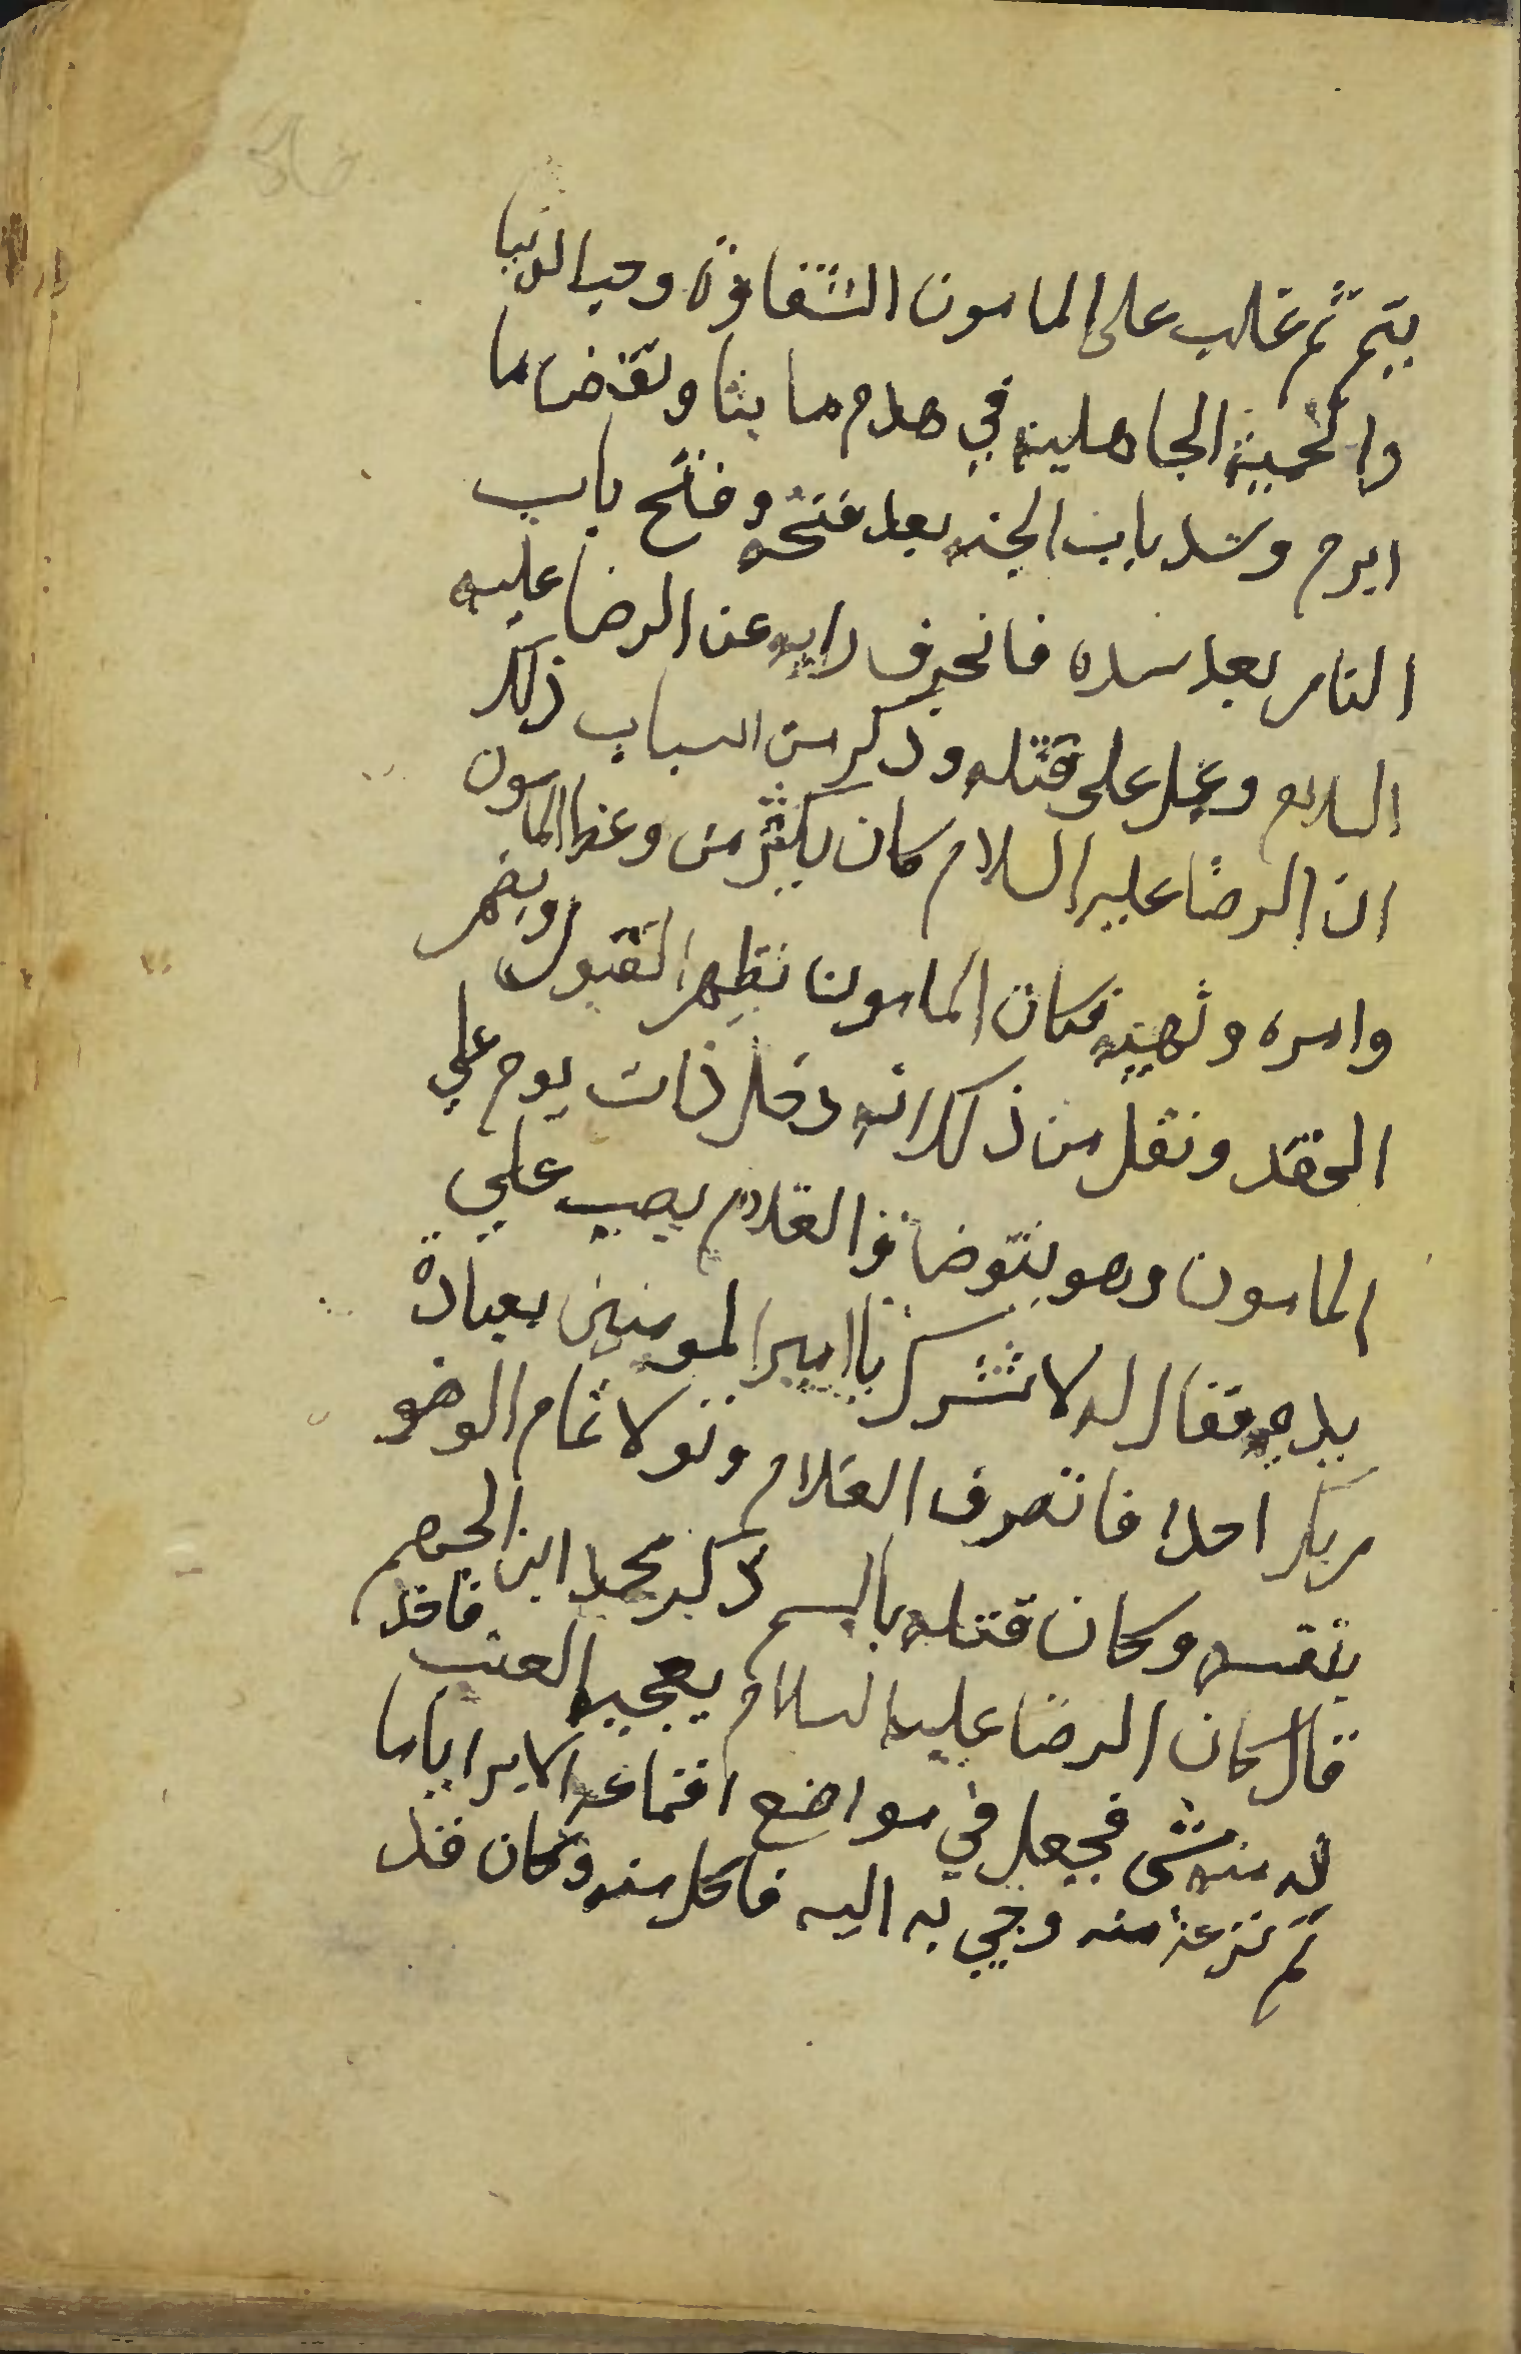 يتم ثم غلب على المامون الشقاوة وحب الدنيا
والحمية الجاهلية في هدم ما بنا ونقض ما
ابرم وسد باب الجنه بعد فتحه وفتح باب
النار بعد سده فانحرف رايه عن الرضا عليه
السلام وعمل على قتله وذكر من اسباب ذلك
ان الرضا عليه السلام كان يكثر من وعظ المامون
وامره ونهيه فكان المامون يظهر القبول ويضمر
الحقد ونقل من ذلك انه دخل ذات يوم علي
المامون وهو يتوضا والغلام يصب علي
يديه فقال له لا تشرك يا امير المومنين بعبادة
ربك احدا فانصرف الغلام وتولا تمام الوضو
بنفسه وكان قتله بالسم ذكر محمد ابن الجهم
قال كان الرضا عليه السلام يعجبه العنب فاخذ
له منه شى فجعل في مواضع اقماعه الابر اياما
ثم نزعة منه وجي به اليه فاكل منه وكان قد